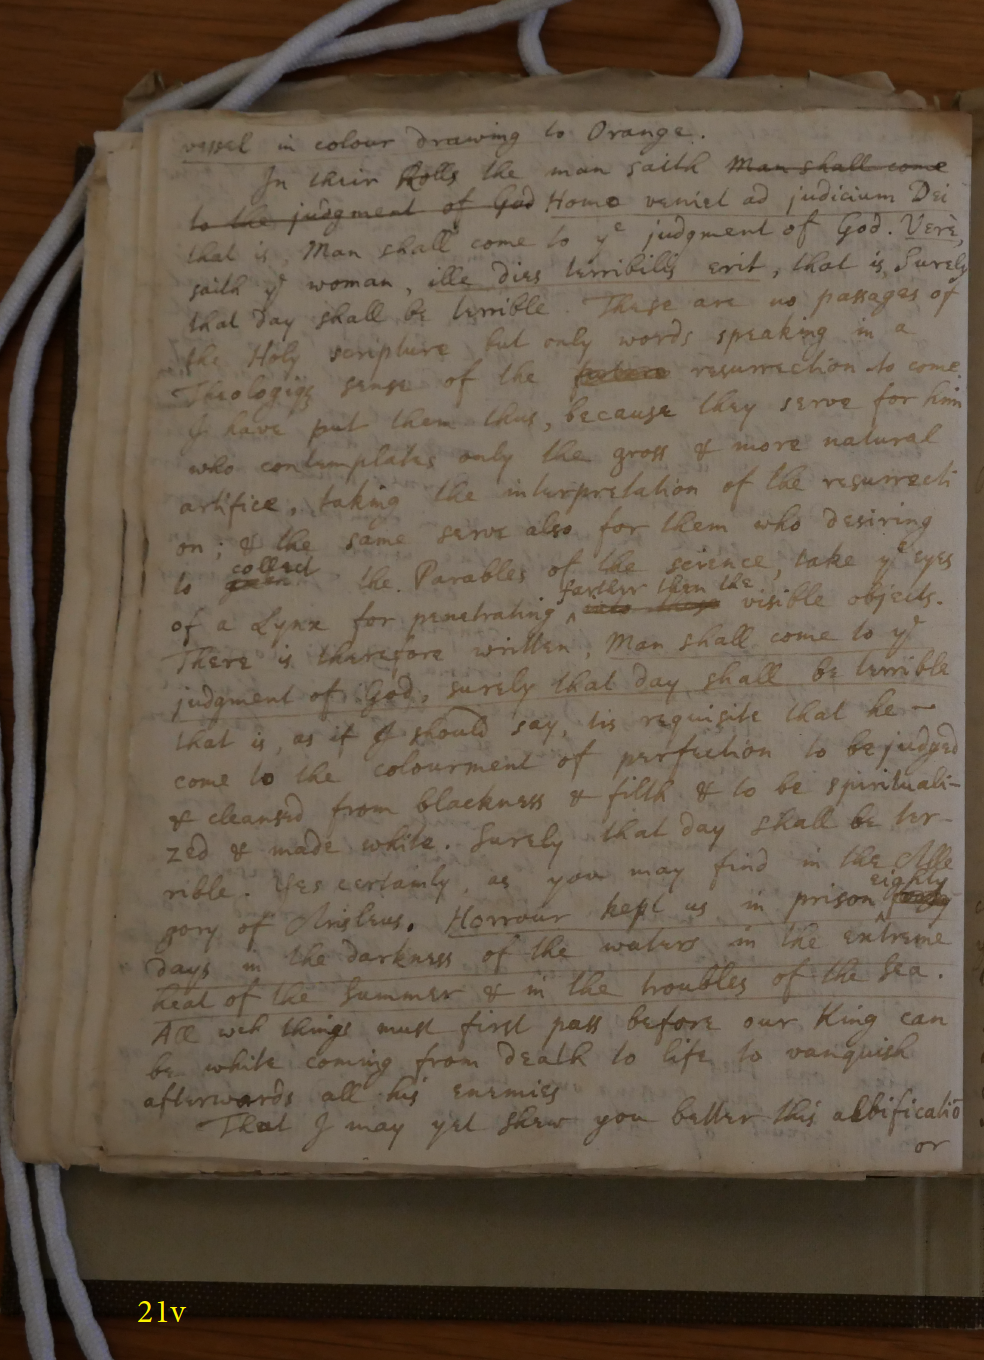 vessel in colour drawing to Orange.
In their Rolls the man saith Man shall come
to the judgment of God Homo veniet ad judicium Dei
that is, Man shall come to ye judgment of God. Verè,
saith ye woman, ille dies terribilis erit, that is, Surely
that day shall be terrible. These are no passages of
the Holy scripture but only words speaking in a
Theologiq sense of the resurrection to come.
I have put them thus, because they serve for him
who contemplates only the gross & more natural
artifice, taking the interpretation of the resurrecti
on; & the same serve also for them who desiring
to collect the Parables of the science, take ye eyes
of a Lynx for penetrating farther then the visible objects.
There is therefore written, Man shall come to ye
judgment of God, surely that day shall be terrible
that is, as if I should say, tis requisite that he
come to the colourment of perfection to be judged
& cleansed from blackness & filth & to be spirituali-
zed & made white. Surely that day shall be ter-
rible. Yes certainly, as you may find in the Alle
gory of Aristeus. Horrour kept us in prison eighty
days in the darkness of the waters in the extreme
heat of the Summer & in the troubles of the Sea.
All wch things must first pass before our King can
be white coming from death to life to vanquish
afterwards all his enemies
That I may yet shew you better this albificatiō
or
21v